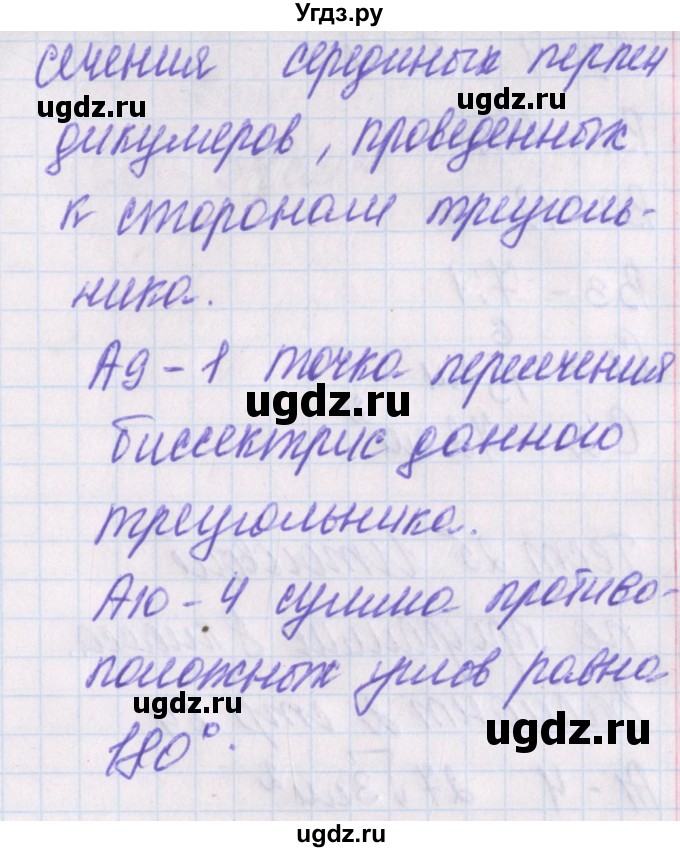 Угдз.ру
сечения серединых перпен
ugdz.ru ugdz.ru
дикумеров, проведенных
к сторонам треуголь-
ника.
А9-1 точка пересечения
ugdz.ru
биссектрис данного
треугольника.
А10-4 сумма противо-
положных углов равна
ugdz.ru ugdz.ru
180°.
ugdz.ru